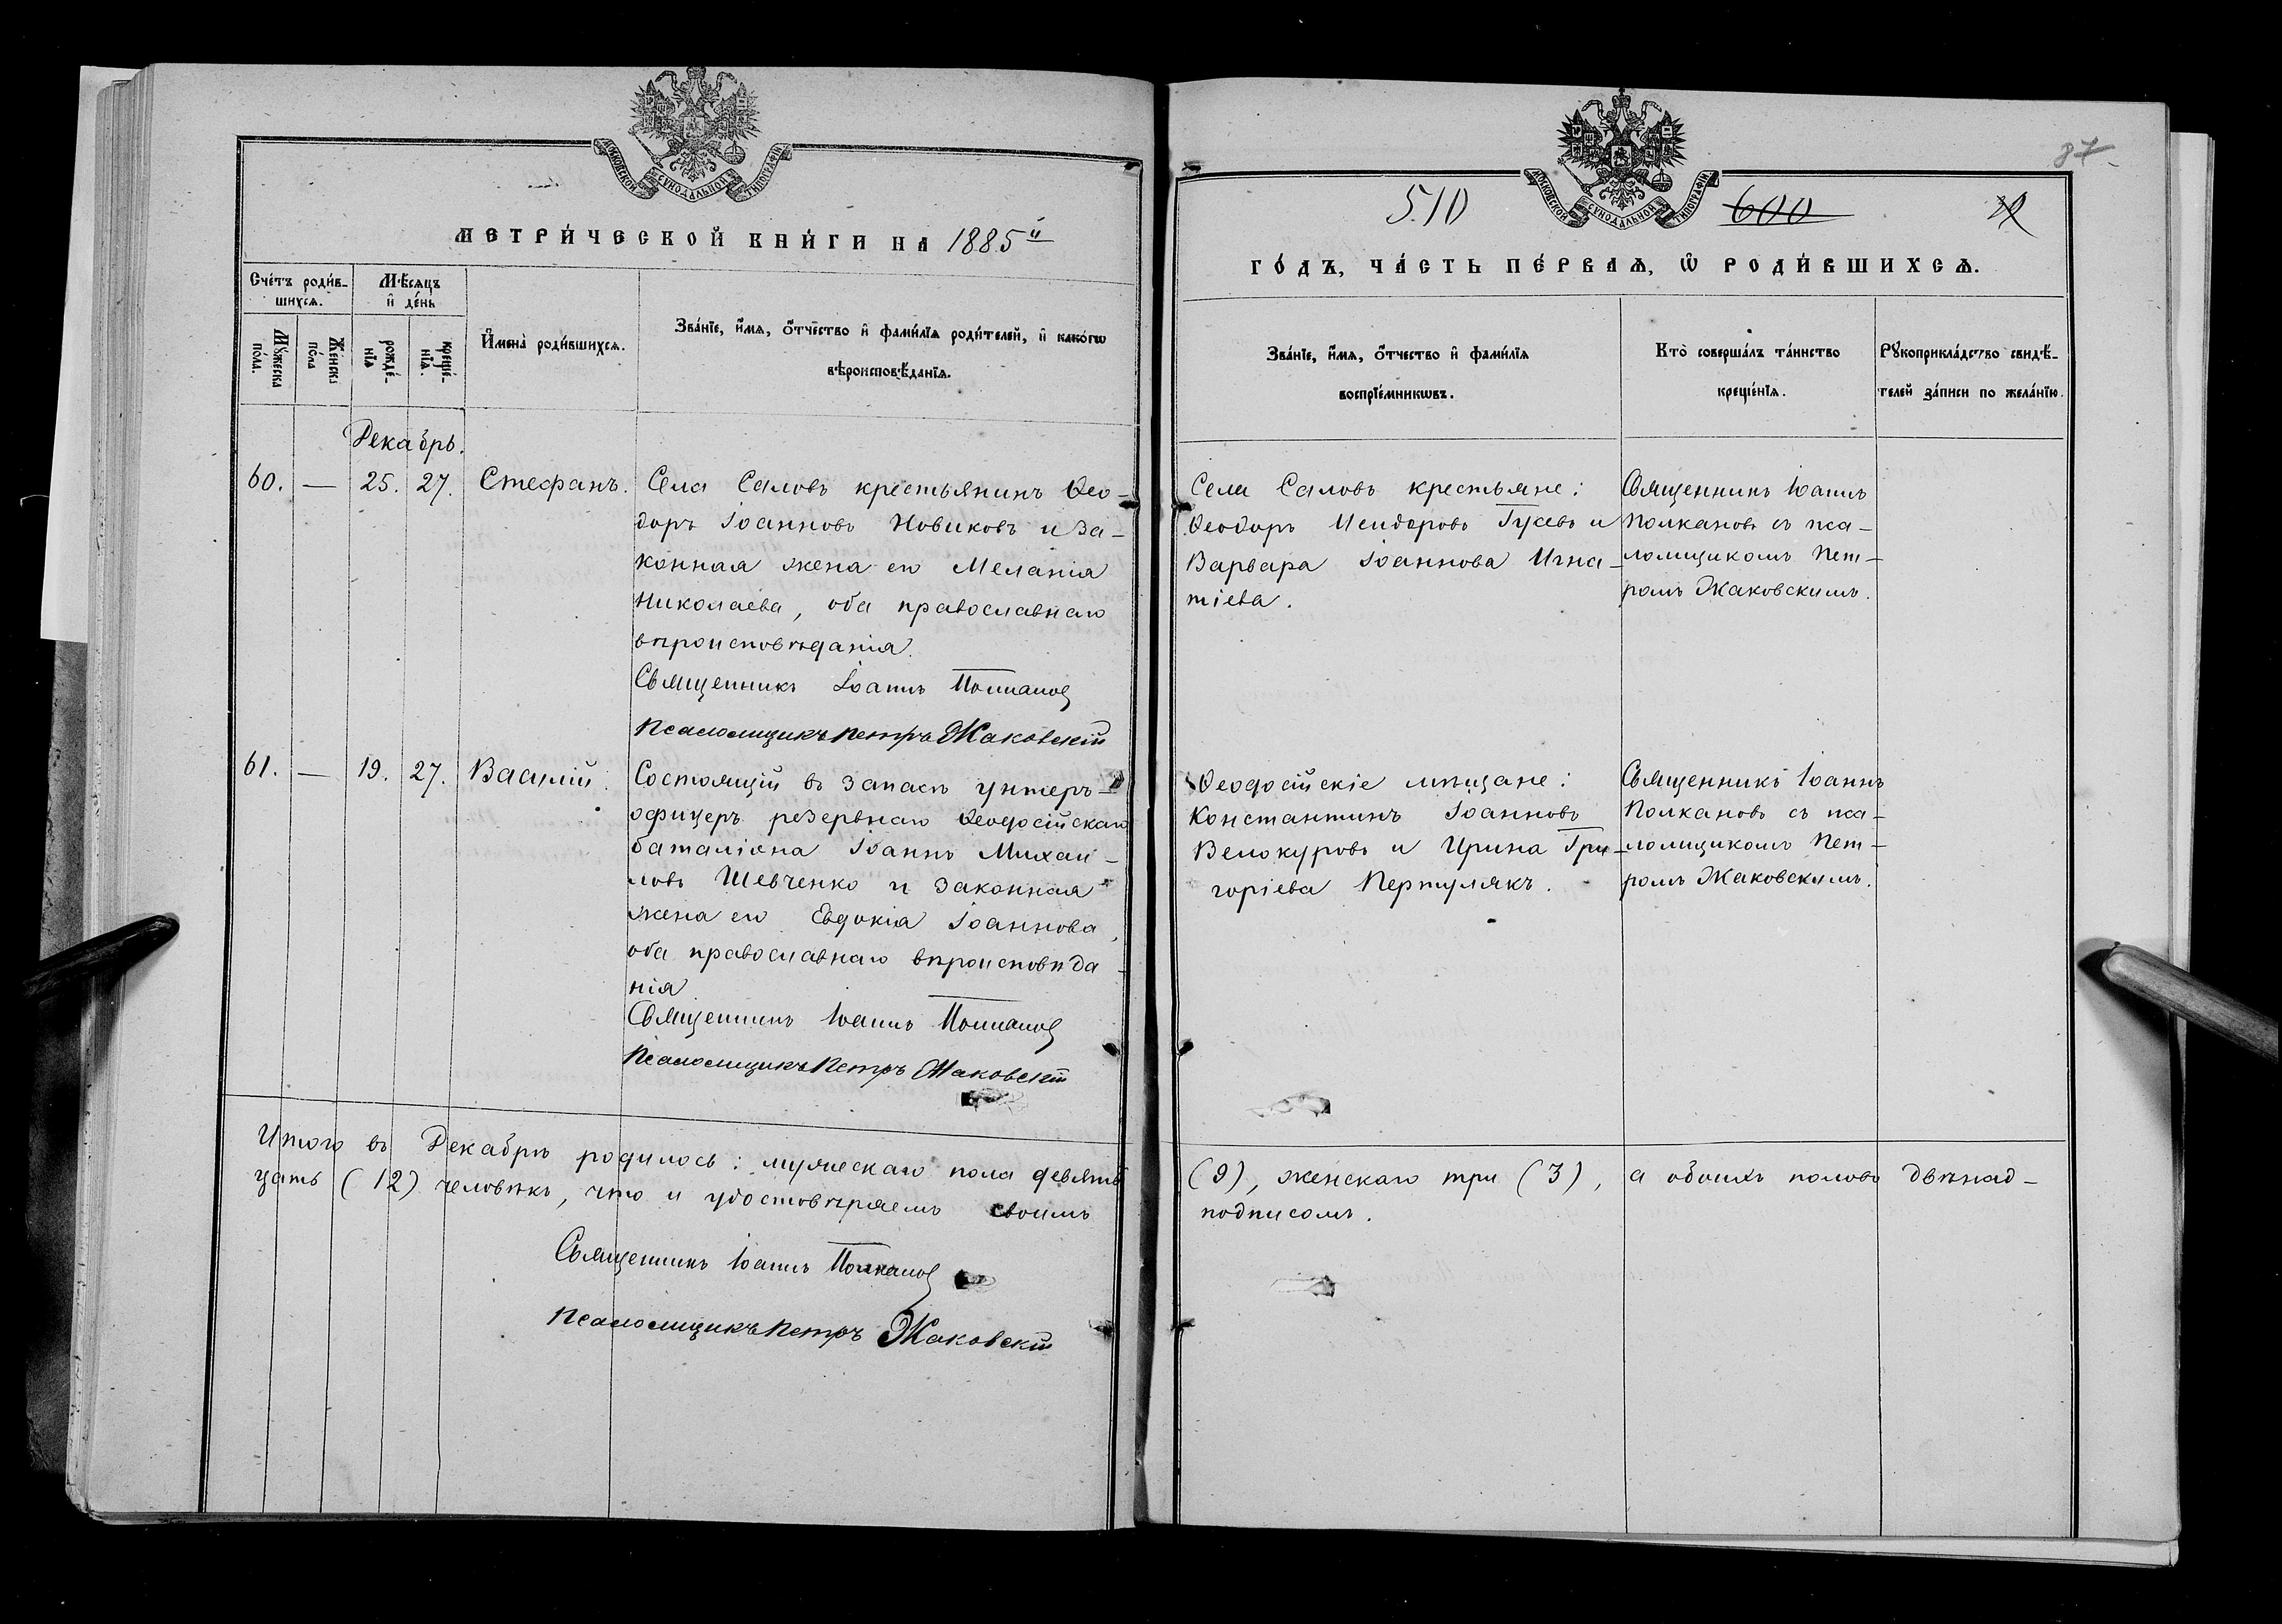 МОСКОВСКОЙ СѴНОДАЛЬНОЙ ТИПОГРАФІИ
МЕТРИ́ЧЕСКОЙ КНИ́ГИ НА 1885й
Сче́тъ роди́в-
шихсѧ.
Мѣ́сѧцъ
и҆ де́нь
Мꙋ́жеска
по́ла.
Же́нска
по́ла
рожде́-
нїѧ
креще́-
нїѧ.
И҆мена̀ роди́вшихсѧ.
Зва́нїе, и҆́мѧ, ѻ҆́тчество и҆ фами́лїѧ роди́телей, и҆ како́гѡ
вѣроисповѣ́данїѧ.
Декабрь.
60. — 25. 27. Стефанъ.
Села Саловъ крестьянинъ Ѳео-
доръ Іоанновъ Новиковъ и за-
конная жена его Меланія
Николаева, оба православнаго
вѣроисповѣданія.
Священникъ Іоаннъ Полкановъ
Псаломщикъ Петръ Жаковскій
61. — 19. 27. Василій.
Состоящій въ запасѣ унтеръ-
офицеръ резервнаго Ѳеодосійскаго
баталіона Іоаннъ Михаи-
ловъ Шевченко и законная
жена его Евдокія Іоаннова,
оба православнаго вѣроисповѣда-
нія
Священникъ Іоаннъ Полкановъ
Псаломщикъ Петръ Жаковскій
Итого въ Декабрѣ родилось: мужескаго пола девять
цать (12) человѣкъ, что и удостовѣряемъ своимъ
Священникъ Іоаннъ Полкановъ
Псаломщикъ Петръ Жаковскій
87
МОСКОВСКОЙ СѴНОДАЛЬНОЙ ТИПОГРАФІИ
510 600
ГО́ДЪ, ЧА́СТЬ ПЕ́РВАѦ, Ѡ҆ РОДИ́ВШИХСѦ.
Зва́нїе, и҆́мѧ, ѻ҆́тчество и҆ фами́лїѧ
воспрїе́мникѡвъ.
Кто̀ соверша́лъ та́инство
креще́нїѧ.
Рꙋкоприкла́дство свидѣ́-
телей за́писи по жела́нїю.
Села Саловъ крестьяне:
Ѳеодоръ Исидоровъ Гусевъ и
Варвара Іоаннова Игна-
тіева.
Священникъ Іоаннъ
Полкановъ съ пса-
ломщикомъ Пет-
ромъ Жаковскимъ.
Ѳеодосійскіе мѣщане:
Константинъ Іоанновъ
Велокуровъ и Ирина Гри-
горіева Пертулякъ.
Священникъ Іоаннъ
Полкановъ съ пса-
ломщикомъ Пет-
ромъ Жаковскимъ.
(9), женскаго три (3), а обоихъ половъ двѣнад-
подписомъ.